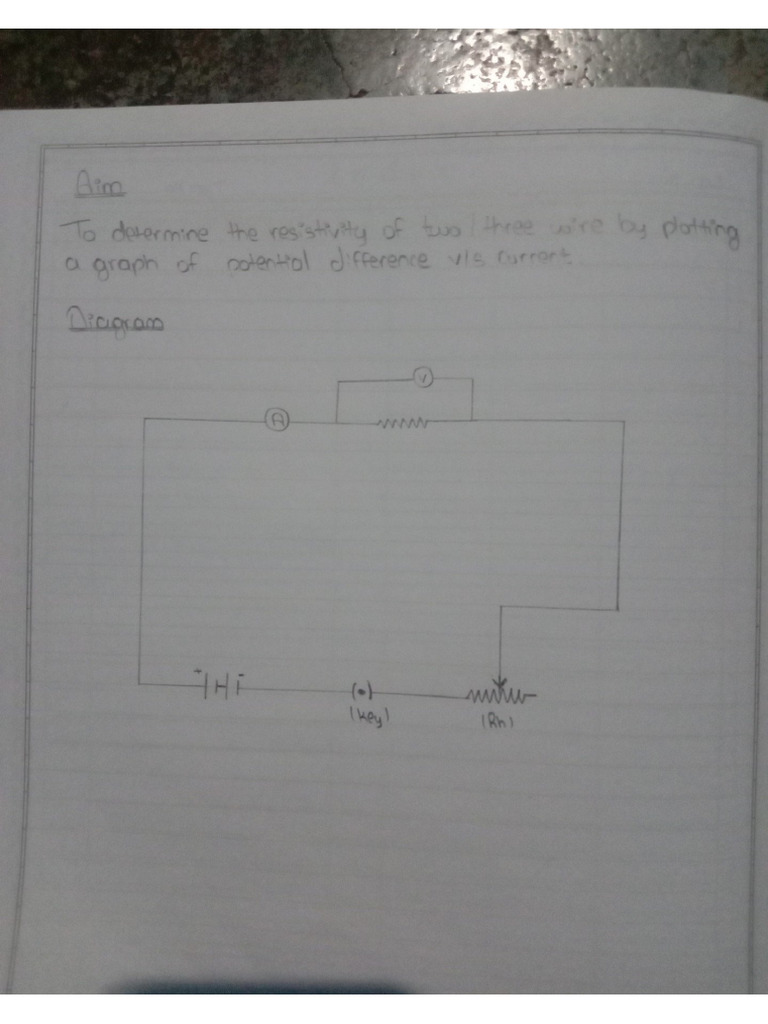 Aim
To determine the resistivity of two/three wire by plotting
a graph of potential difference v/s current.
Diagram
V
A
+ -
(•)
(key)
(Rh)